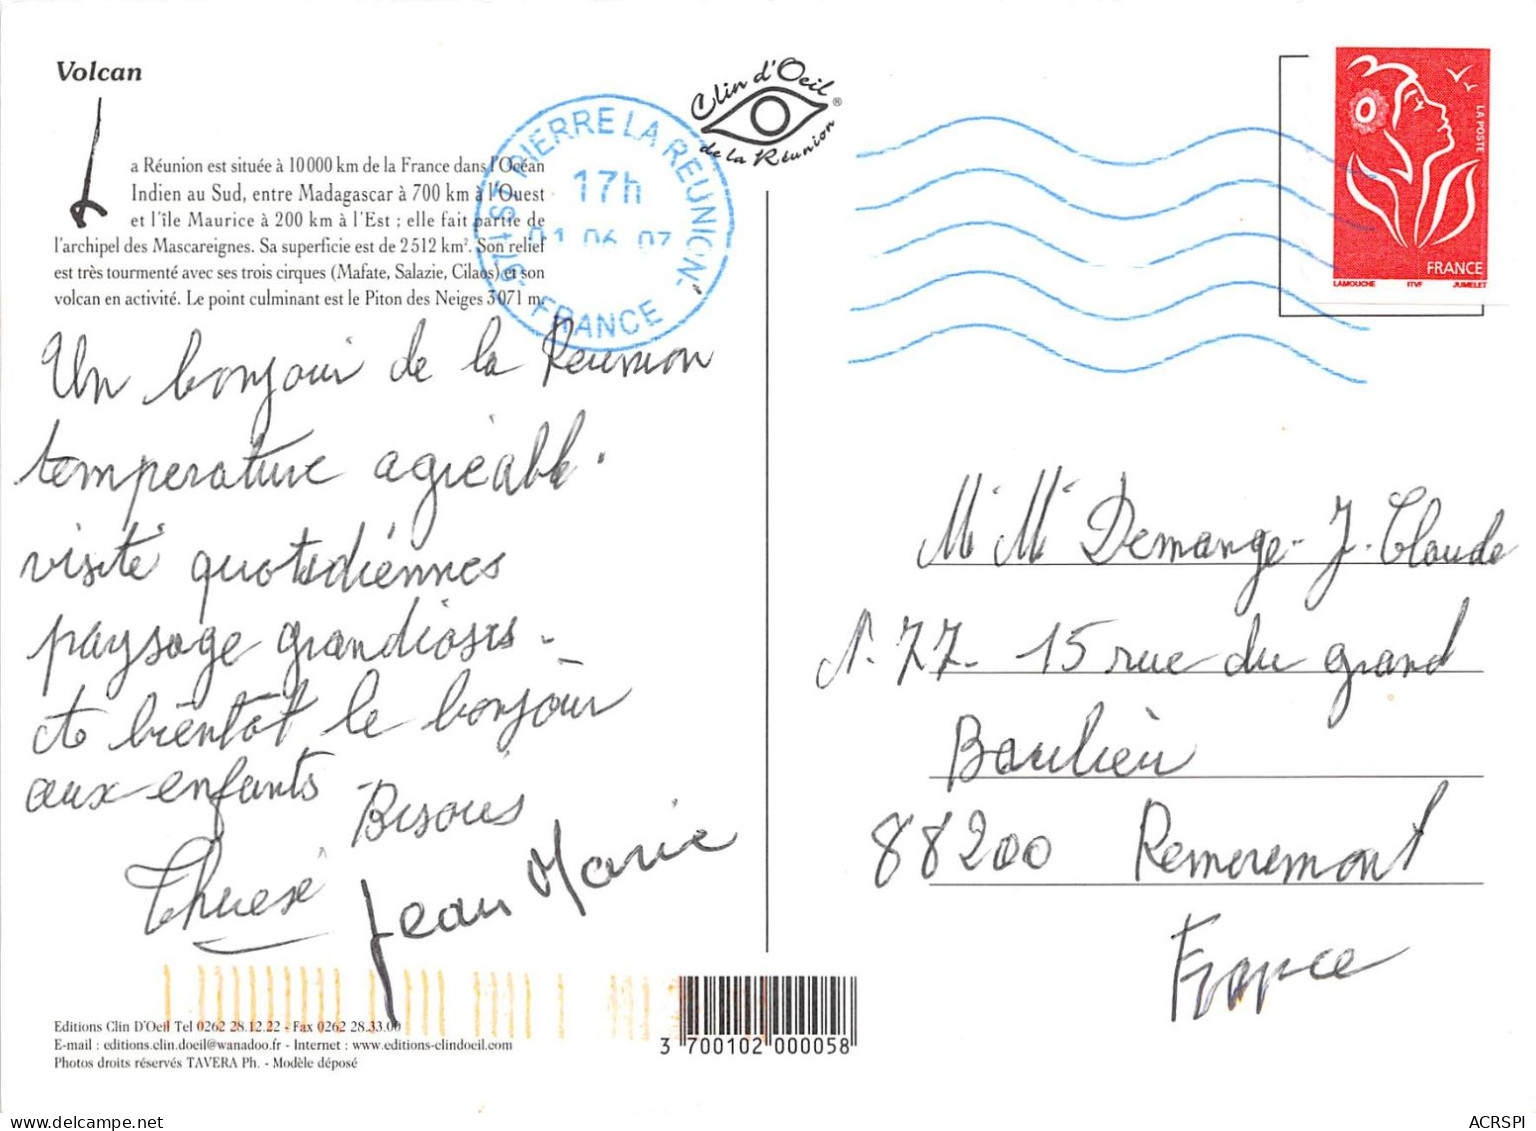 Volcan
La Réunion est située à 10 000 km de la France dans l'Océan
Indien au Sud, entre Madagascar à 700 km à l'Ouest
et l'île Maurice à 200 km à l'Est ; elle fait partie de
l'archipel des Mascareignes. Sa superficie est de 2 512 km². Son relief
est très tourmenté avec ses trois cirques (Mafate, Salazie, Cilaos) et son
volcan en activité. Le point culminant est le Piton des Neiges 3 071 m.
Clin d'Oeil ®
de la Réunion
ST PIERRE LA REUNION
17h
01 06 07
FRANCE
LA POSTE
FRANCE
LAMOUCHE ITVF JUMELET
Un bonjour de la Reunion
temperature agréable.
visité quotidiennes
paysage grandioses.
a bientot le bonjour
aux enfants
Bisous
Therese
Jean Marie
M. M Demange - J. Claude
N. 77 - 15 rue du grand
Baulieu
88200 Remeremont
France
Editions Clin D'Oeil Tel 0262 28.12.22 - Fax 0262 28.33.00
E-mail : editions.clin.doeil@wanadoo.fr - Internet : www.editions-clindoeil.com
Photos droits réservés TAVERA Ph. - Modèle déposé
3 700102 000058
www.delcampe.net
ACRSPI